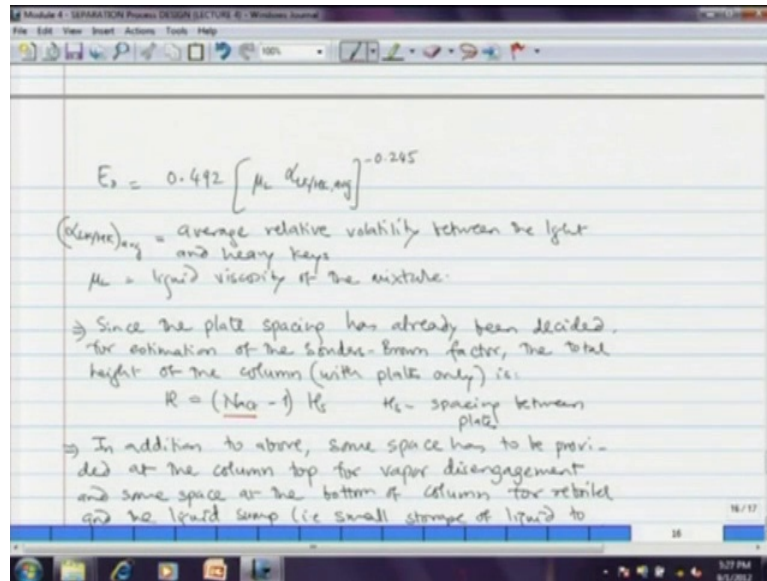 Module 4 - SEPARATION Process DESIGN (LECTURE 4) - Windows Journal
File Edit View Insert Actions Tools Help
100%
E₀ = 0.492 [ μL αLK/HK, avg ]^-0.245
(αLK/HK)avg = average relative volatility between the light
and heavy keys
μL = liquid viscosity of the mixture.
⇒ Since the plate spacing has already been decided.
for estimation of the Souders-Brown factor, the total
height of the column (with plates only) is:
= (Naa - 1) Hs Hs - spacing between
plates
⇒ In addition to above, some space has to be provi-
ded at the column top for vapor disengagement
and some space at the bottom of column for reboiler
and the liquid sump (ie small storage of liquid to
16 / 17
16
5:27 PM
8/1/2012